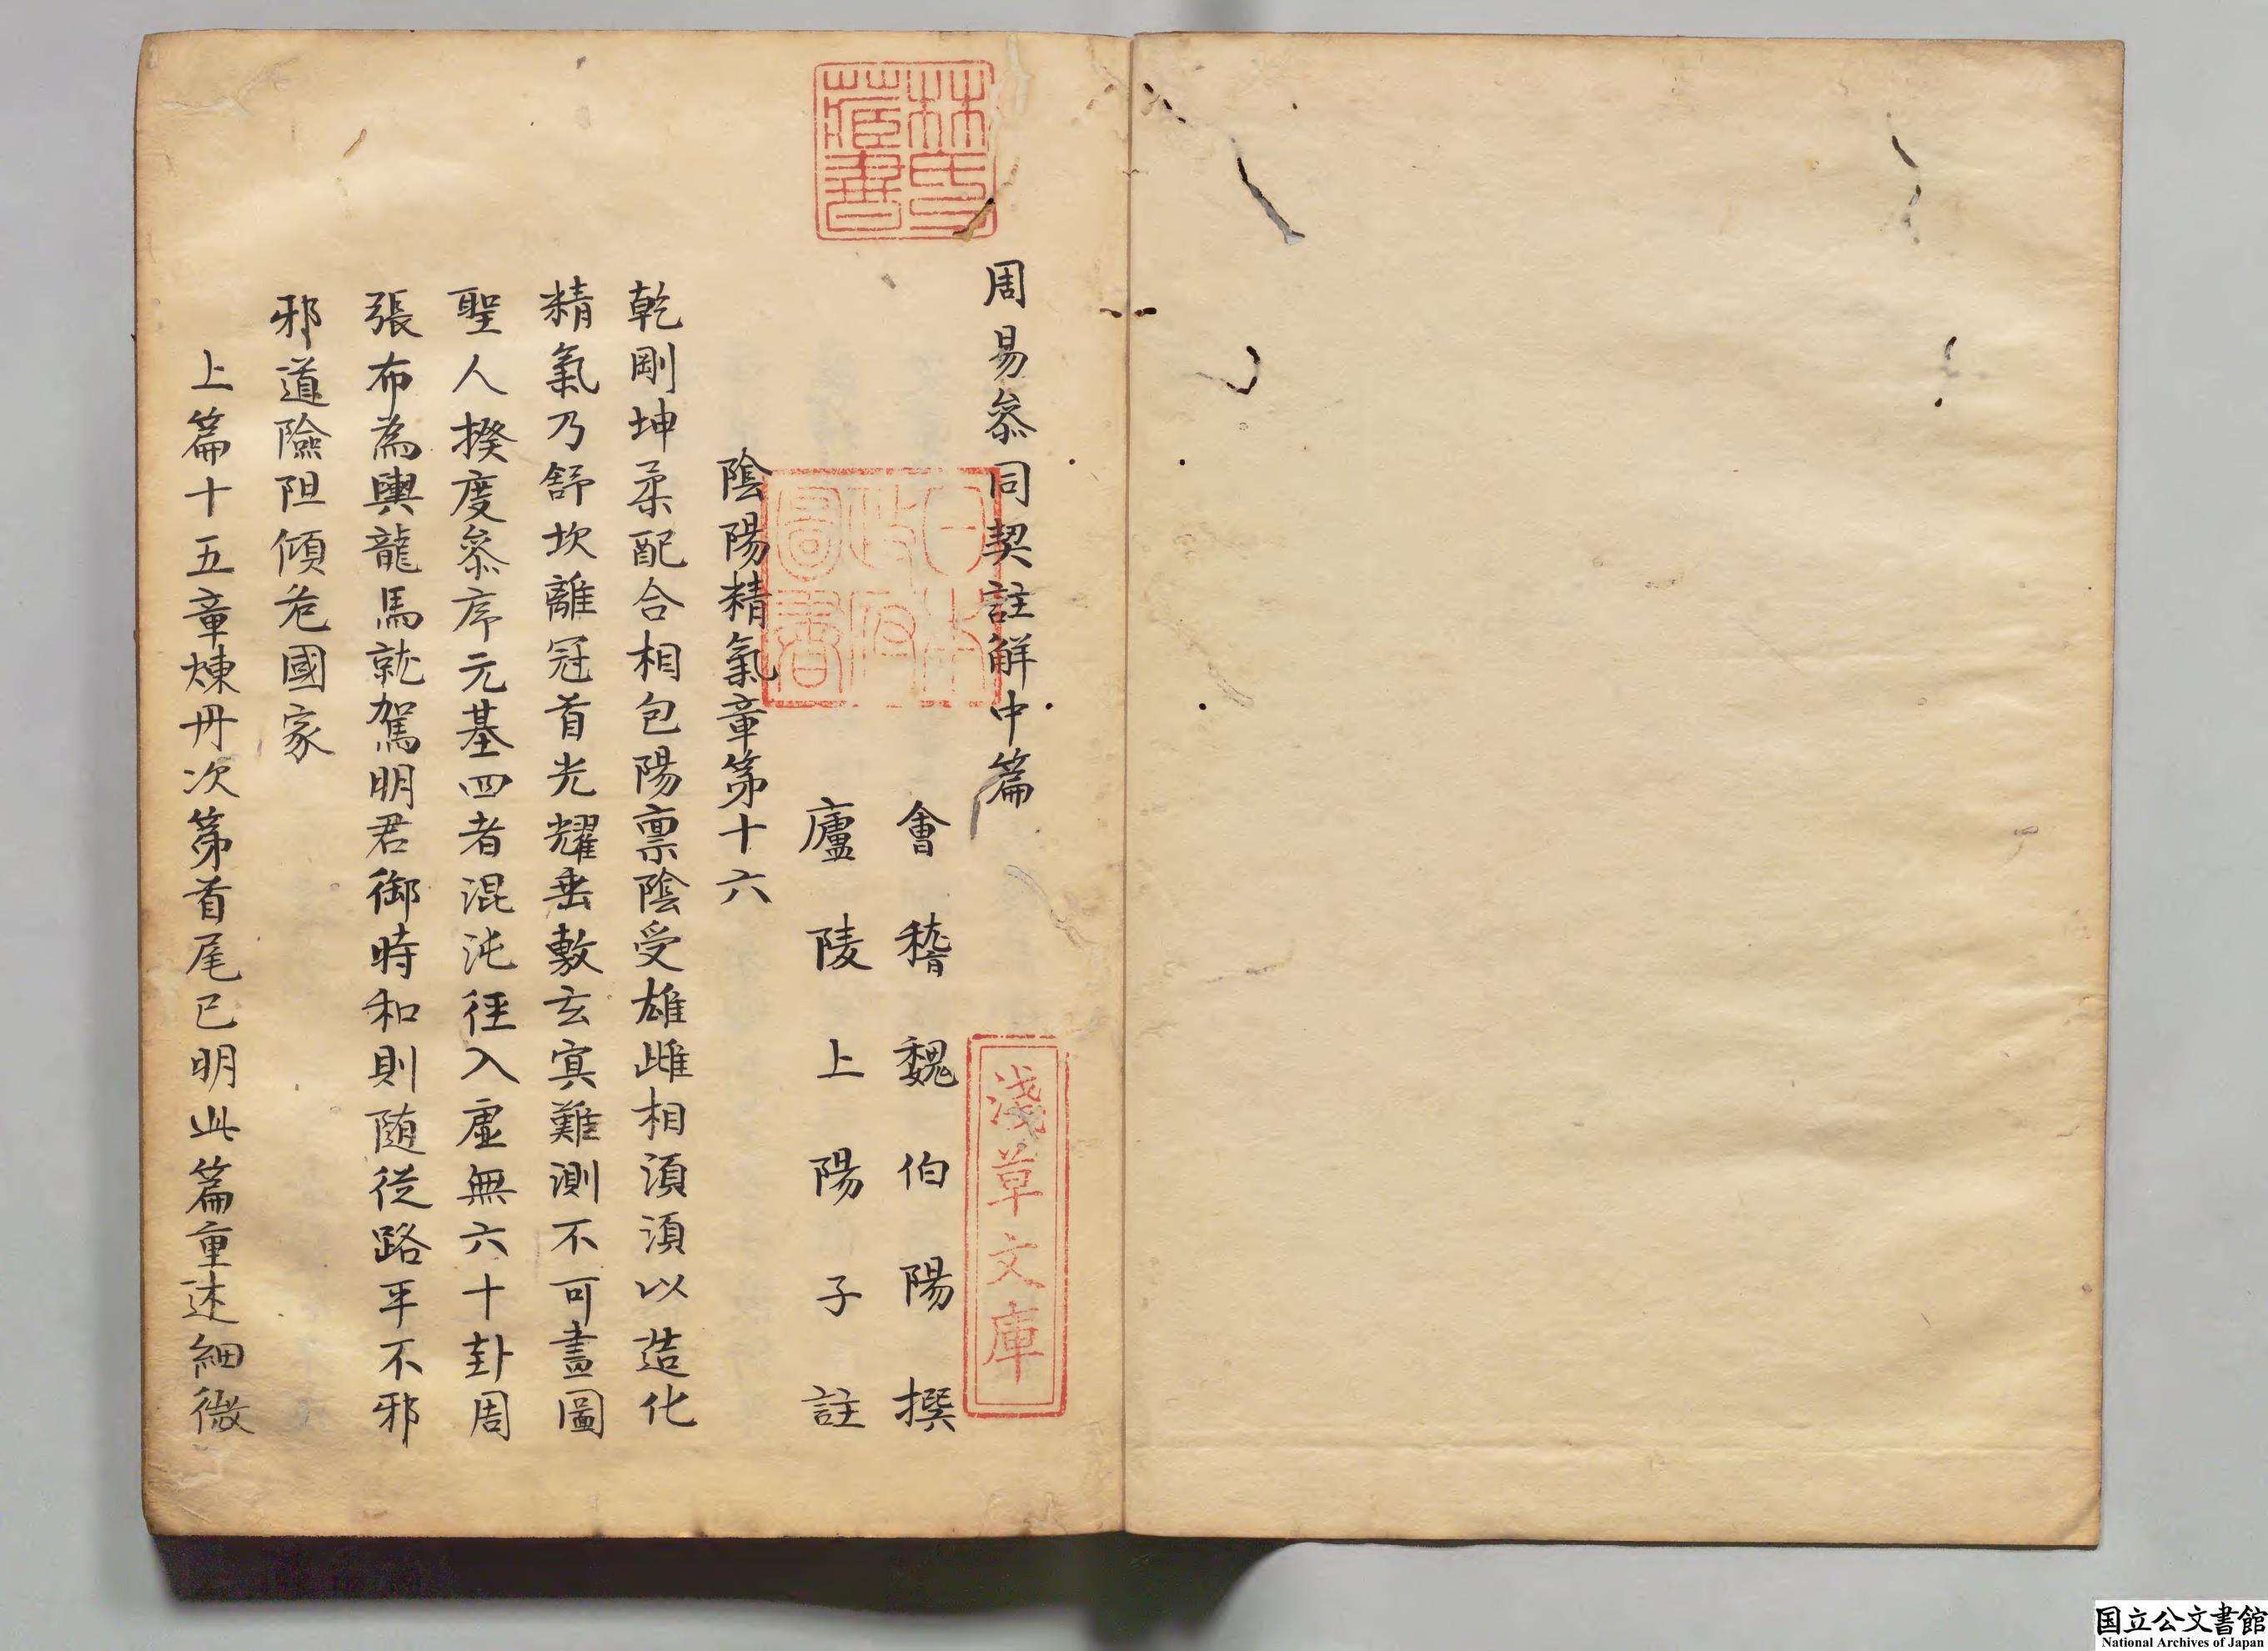 周易叅同契註解中篇
會稽魏伯陽撰
廬陵上陽子註
陰陽精氣章第十六
乾剛坤柔配合相包陽禀陰受雄雌相湏湏以造化
精氣乃舒坎離冠首光耀垂敷玄冥難測不可畫圖
聖人揆度叅序元基四者混沌徑入虛無六十卦周
張布為輿龍馬就駕明君御時和則随從路平不邪
邪道險阻傾危國家
上篇十五章煉丹次第首尾已明此篇重述細微
林氏藏書
日本政府圖書
淺草文庫
国立公文書館
National Archives of Japan